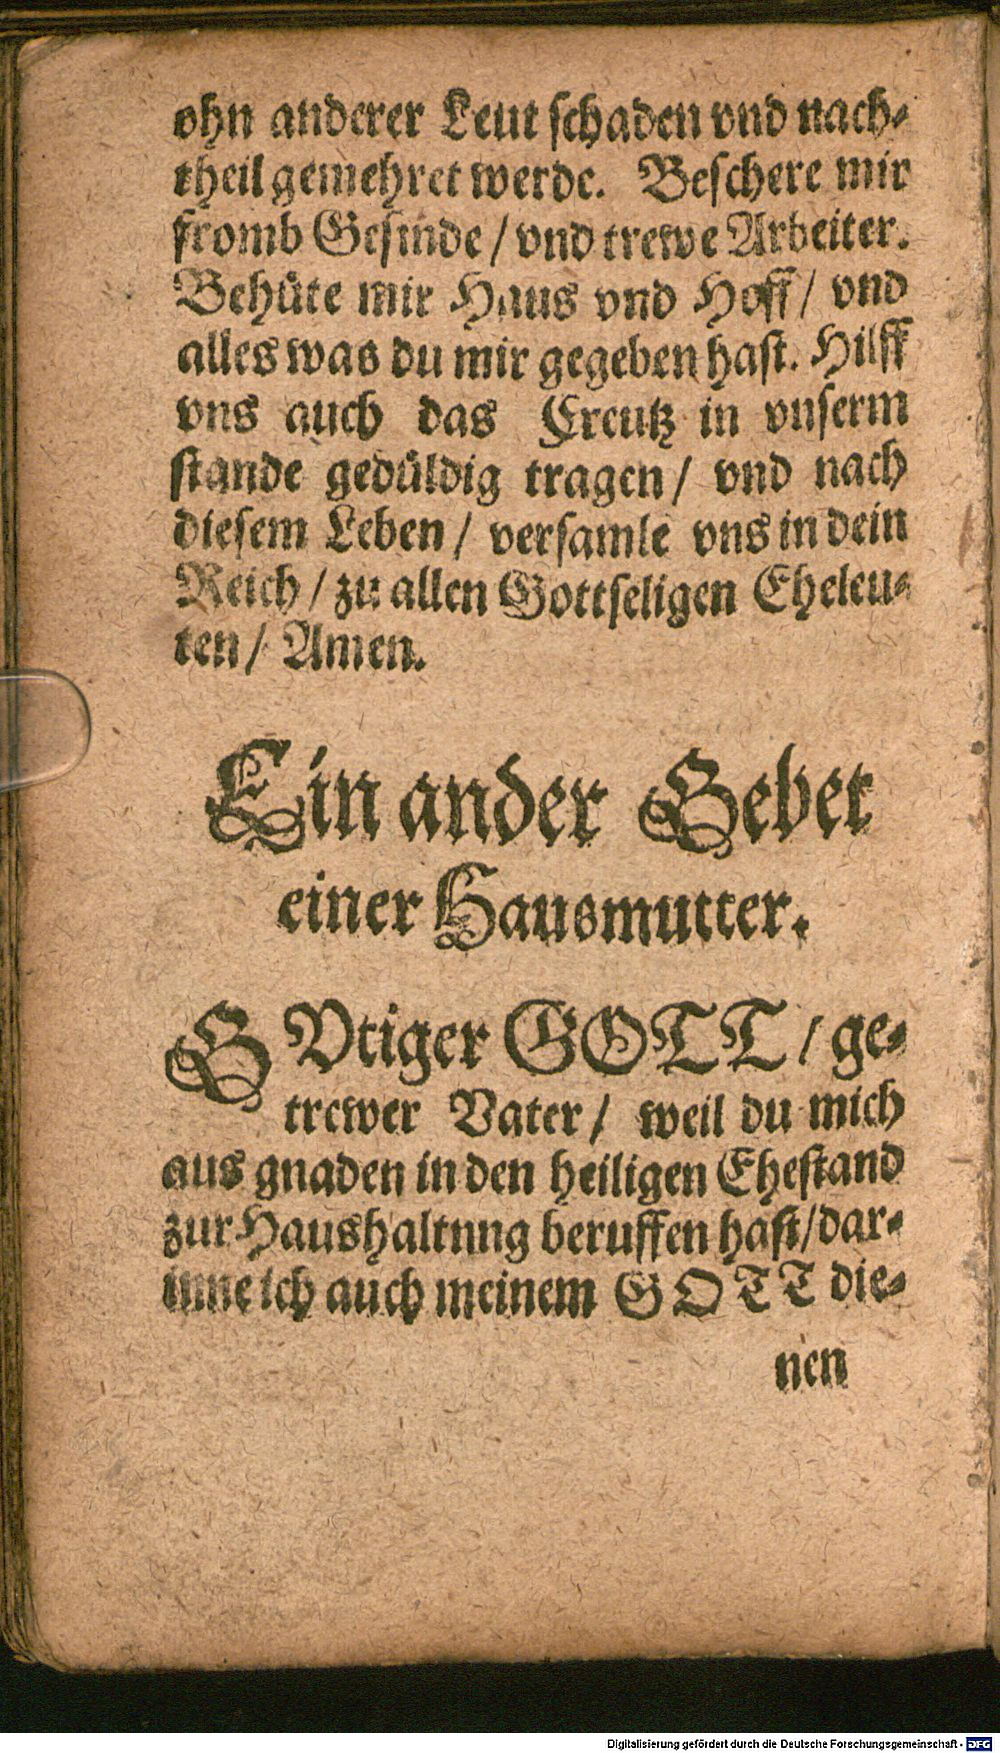 ohn anderer Leut schaden vnd nach-
theil gemehret werde. Beschere mir
fromb Gesinde / vnd trewe Arbeiter.
Behüte mir Haus vnd Hoff / vnd
alles was du mir gegeben hast. Hilff
vns auch das Creutz in vnserm
stande gedüldig tragen / vnd nach
diesem Leben / versamle vns in dein
Reich / zu allen Gottseligen Eheleu-
ten / Amen.
Ein ander Gebet
einer Hausmutter.
GVtiger GOTT / ge-
trewer Vater / weil du mich
aus gnaden in den heiligen Ehestand
zur Haushaltnng beruffen hast / dar-
inne ich auch meinem GOTT die-
nen
Digitalisierung gefördert durch die Deutsche Forschungsgemeinschaft - DFG